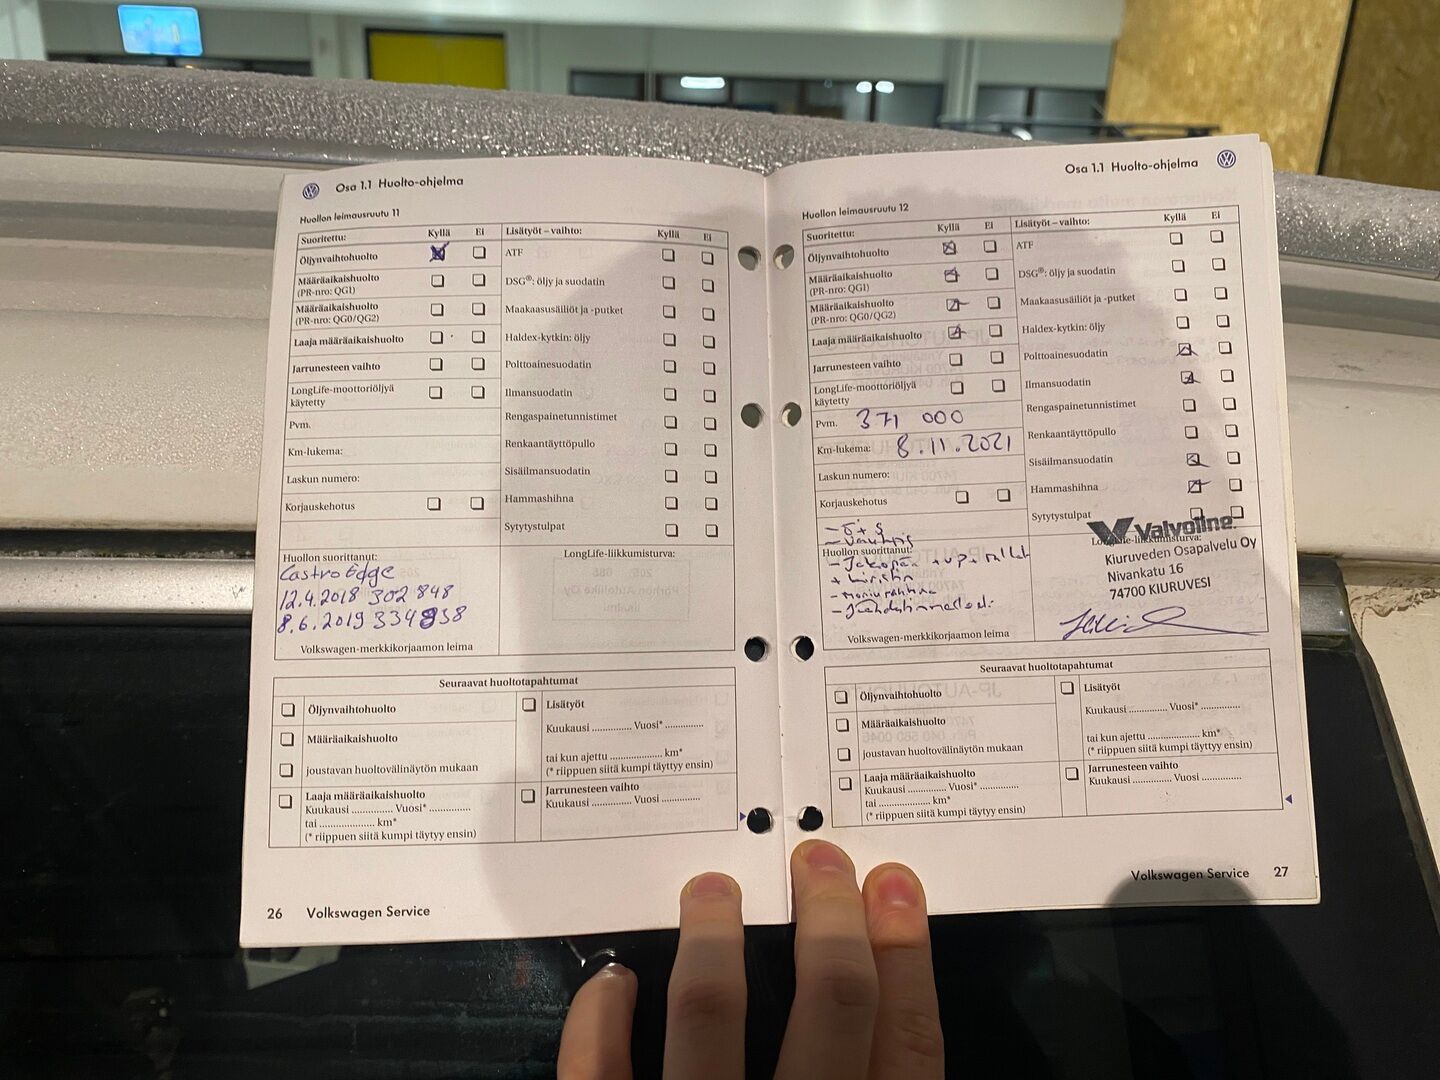 Osa 1.1 Huolto-ohjelma
Huollon leimausruutu 11
Suoritettu: Kyllä Ei
Öljynvaihtohuolto
Määräaikaishuolto
(PR-nro: QG1)
Määräaikaishuolto
(PR-nro: QG0/QG2)
Laaja määräaikaishuolto
Jarrunesteen vaihto
LongLife-moottoriöljyä
käytetty
Pvm.
Km-lukema:
Laskun numero:
Korjauskehotus
Lisätyöt – vaihto: Kyllä Ei
ATF
DSG®: öljy ja suodatin
Maakaasusäiliöt ja -putket
Haldex-kytkin: öljy
Polttoainesuodatin
Ilmansuodatin
Rengaspainetunnistimet
Renkaantäyttöpullo
Sisäilmansuodatin
Hammashihna
Sytytystulpat
Huollon suorittanut:
Castro Edge
12.4.2018 302 848
8.6.2019 334938
Volkswagen-merkkikorjaamon leima
LongLife-liikkumisturva:
Seuraavat huoltotapahtumat
Öljynvaihtohuolto
Määräaikaishuolto
joustavan huoltovälinäytön mukaan
Laaja määräaikaishuolto
Kuukausi .............. Vuosi* ..............
tai .................... km*
(* riippuen siitä kumpi täytyy ensin)
Lisätyöt
Kuukausi ........... Vuosi* .............
tai kun ajettu ................... km*
(* riippuen siitä kumpi täyttyy ensin)
Jarrunesteen vaihto
Kuukausi ............. Vuosi .............
26 Volkswagen Service
Osa 1.1 Huolto-ohjelma
Huollon leimausruutu 12
Suoritettu: Kyllä Ei
Öljynvaihtohuolto
Määräaikaishuolto
(PR-nro: QG1)
Määräaikaishuolto
(PR-nro: QG0/QG2)
Laaja määräaikaishuolto
Jarrunesteen vaihto
LongLife-moottoriöljyä
käytetty
Pvm. 371 000
Km-lukema: 8.11.2021
Laskun numero:
Korjauskehotus
Lisätyöt – vaihto: Kyllä Ei
ATF
DSG®: öljy ja suodatin
Maakaasusäiliöt ja -putket
Haldex-kytkin: öljy
Polttoainesuodatin
Ilmansuodatin
Rengaspainetunnistimet
Renkaantäyttöpullo
Sisäilmansuodatin
Hammashihna
Sytytystulpat
- Ö + S
Huollon suorittanut:
- Jakopää + vp + rullat
+ kiristin
- Moniurahihna
Volkswagen-merkkikorjaamon leima
Valvoline
Kiuruveden Osapalvelu Oy
Nivankatu 16
74700 KIURUVESI
Seuraavat huoltotapahtumat
Öljynvaihtohuolto
Määräaikaishuolto
joustavan huoltovälinäytön mukaan
Laaja määräaikaishuolto
Kuukausi ............. Vuosi* .............
tai .................... km*
(* riippuen siitä kumpi täytyy ensin)
Lisätyöt
Kuukausi ............ Vuosi* ............
tai kun ajettu .................... km*
(* riippuen siitä kumpi täyttyy ensin)
Jarrunesteen vaihto
Kuukausi ............ Vuosi ............
Volkswagen Service 27